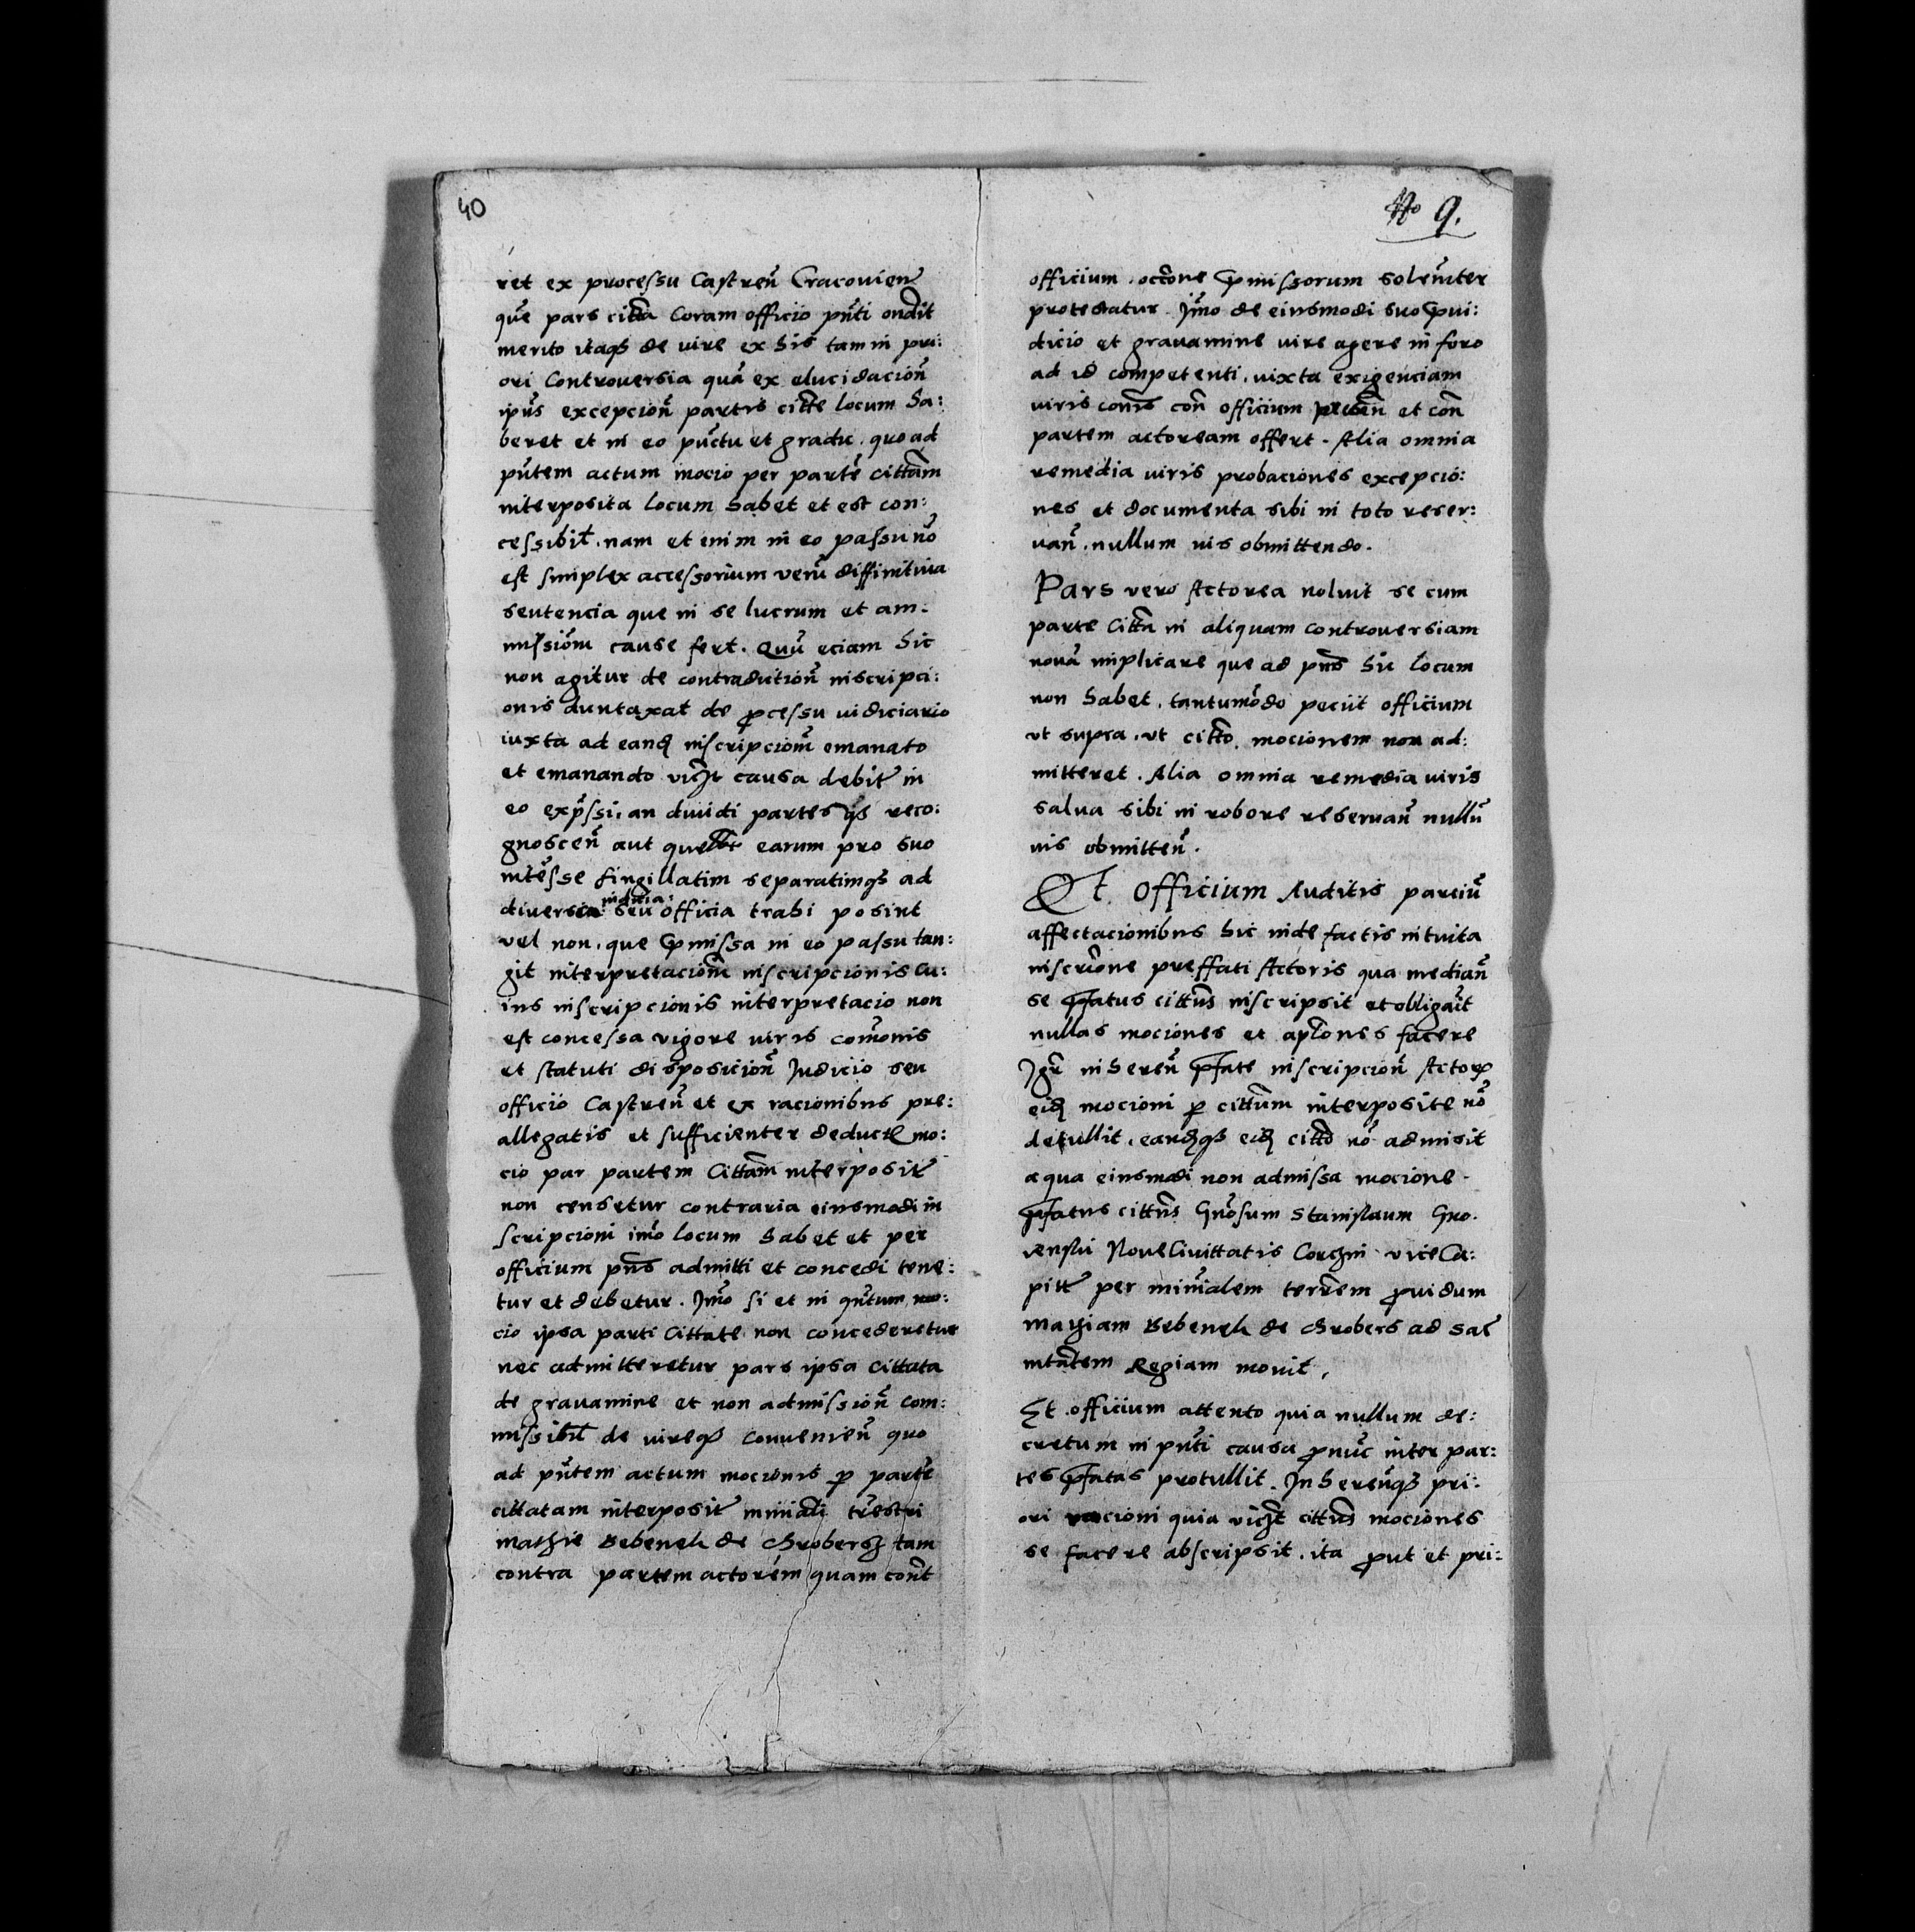 40
ret ex processu Castren̄ Cracovien̄
que pars citta Coram officio pn̄ti ondit
merito itaqȝ de iure ex his tam in pri:
ori Controversia quā ex elucidacion̄
ipīus excepcion̄ partis citte locum ha:
beret et in eo pūctu et gradu. quo ad
pn̄tem actum mocio per partē cittam
interposita locum habet et est con:
cessibil. nam et enim in eo passu nō
est simplex accessorium verū diffinitiva
sentencia que in se lucrum et am:
missionē cause fert. Quū eciam hic
non agitur de contradiction̄ inscripci:
onis duntaxat de ꝓcessu iudiciario
iuxta ad eandȩ inscripcionē emanato
et emanando vichȝt causa debit in
eo exp̄ssi. an dividi partes reco:
gnoscen̄ aut quelibet earum pro suo
intēsse singillatim separatimqȝ ad
diversa iudicia seu officia trahi posint
vel non. que p̄missa in eo passu tan:
git interpretacionē inscripcionis Cu:
ius inscripcionis interpretacio non
est concessa vigore iuris comōnis
et statuti disposicion̄ Judicio seu
officio Castren̄ et ex racionibus pre:
allegatis et sufficienter deducte mo:
cio par partem Cittam interposit̄
non censetur contraria eiusmodi in
scripcioni imō locum habet et per
officium pn̄s admitti et concedi tene:
tur et debetur. Jmō si et in qn̄tum mo:
cio ipsa parti Cittate non concederetur
nec admitteretur pars ipsa cittata
de gravamine et non admission̄ com:
missibil de iureqȝ convenien̄ quo
ad pn̄tem actum mocionis ꝑ partē
cittatam interposit̄ miniāli tr̄estri
mathie Bebenek de Chrobersȝ tam
contra partem actorēm quam cont̄
No 9.
officium. occōne p̄missorum solemīter
protestatur. Jmō de eiusmodi suo p̄iu:
dicio et gravamine iure agere in foro
ad id competenti. iuxta exigenciam
iuris coīs con̄ officium presen̄ et con̄
partem actoream offert. Alia omnia
remedia iuris probaciones excepcio:
nes et documenta sibi in toto reser:
van̄. nullum ius obmittendo.
Pars vero Actorea noluit se cum
parte Citta in aliquam controversiam
novā implicare que ad pn̄s hic locum
non habet. tantumōdo peciit officium
ut supra. ut citto. mocionem non ad:
mitteret. Alia omnia remedia iuris
salva sibi in robore reservan̄ nullū
ius obmitten̄.
Et Officium Auditis parciū
affectacionibus hic inde factis intuita
inscriōne preffati Actoris qua median̄
se p̄fatus cittūs inscripsit et obligavit
nullas mociones et apl̄ones facere
Jgr̄ inheren̄ p̄fate inscripcion̄ Actorꝭ
eidȩ mocioni ꝑ cittūm interposite nō
detullit. eandȩqȝ eidȩ citto nō admisit
a qua eiusmodi non admissa mocione
p̄fatus cittūs Gn̄osum Stanislaum Gno:
Nove Civittatis Corchin viceCa:
pitt̄ per miniālem terrēm ꝓvidum
Mathiam Bebenek de Chrobers ad Sac̄
mtātem Regiam movit.
Et officium attento quia nullum de:
cretum in pn̄ti causa ꝓnūc inter par:
tes p̄fatas protullit. Jnheren̄qȝ pri:
ori racioni quia vichȝt cittūs mociones
se facere abscripsit. ita ꝓut et pri: